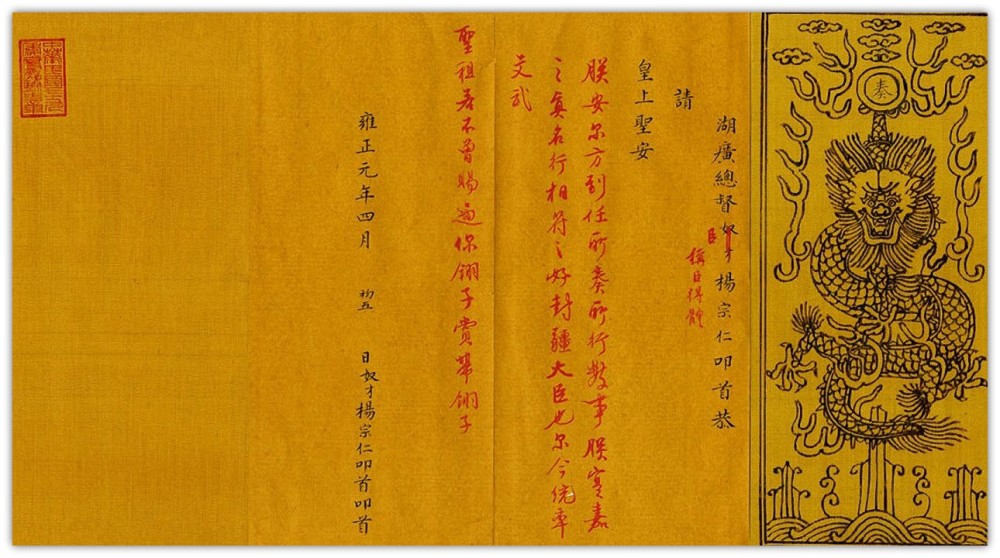 奏
湖廣總督奴才楊宗仁叩首恭
臣
稱臣得體
請
皇上聖安
朕安尔方到任所奏所行數事朕寔嘉
之真名行相符之好封疆大臣也尔今統率
文武
聖祖若不曾賜過你翎子賞翎子
雍正元年四月 初五 日奴才楊宗仁叩首叩首